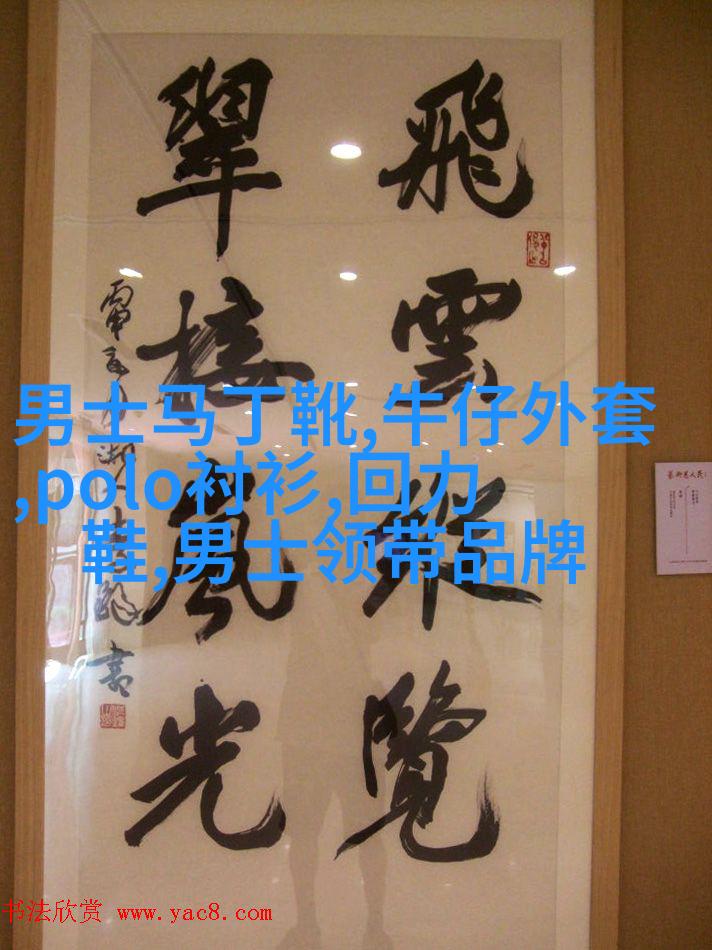 飛雲縱覽
翠接嵐光
書
男士马丁靴,牛仔外套
,polo衬衫,回力
鞋,男士领带品牌
书法欣赏 www.yac8.com